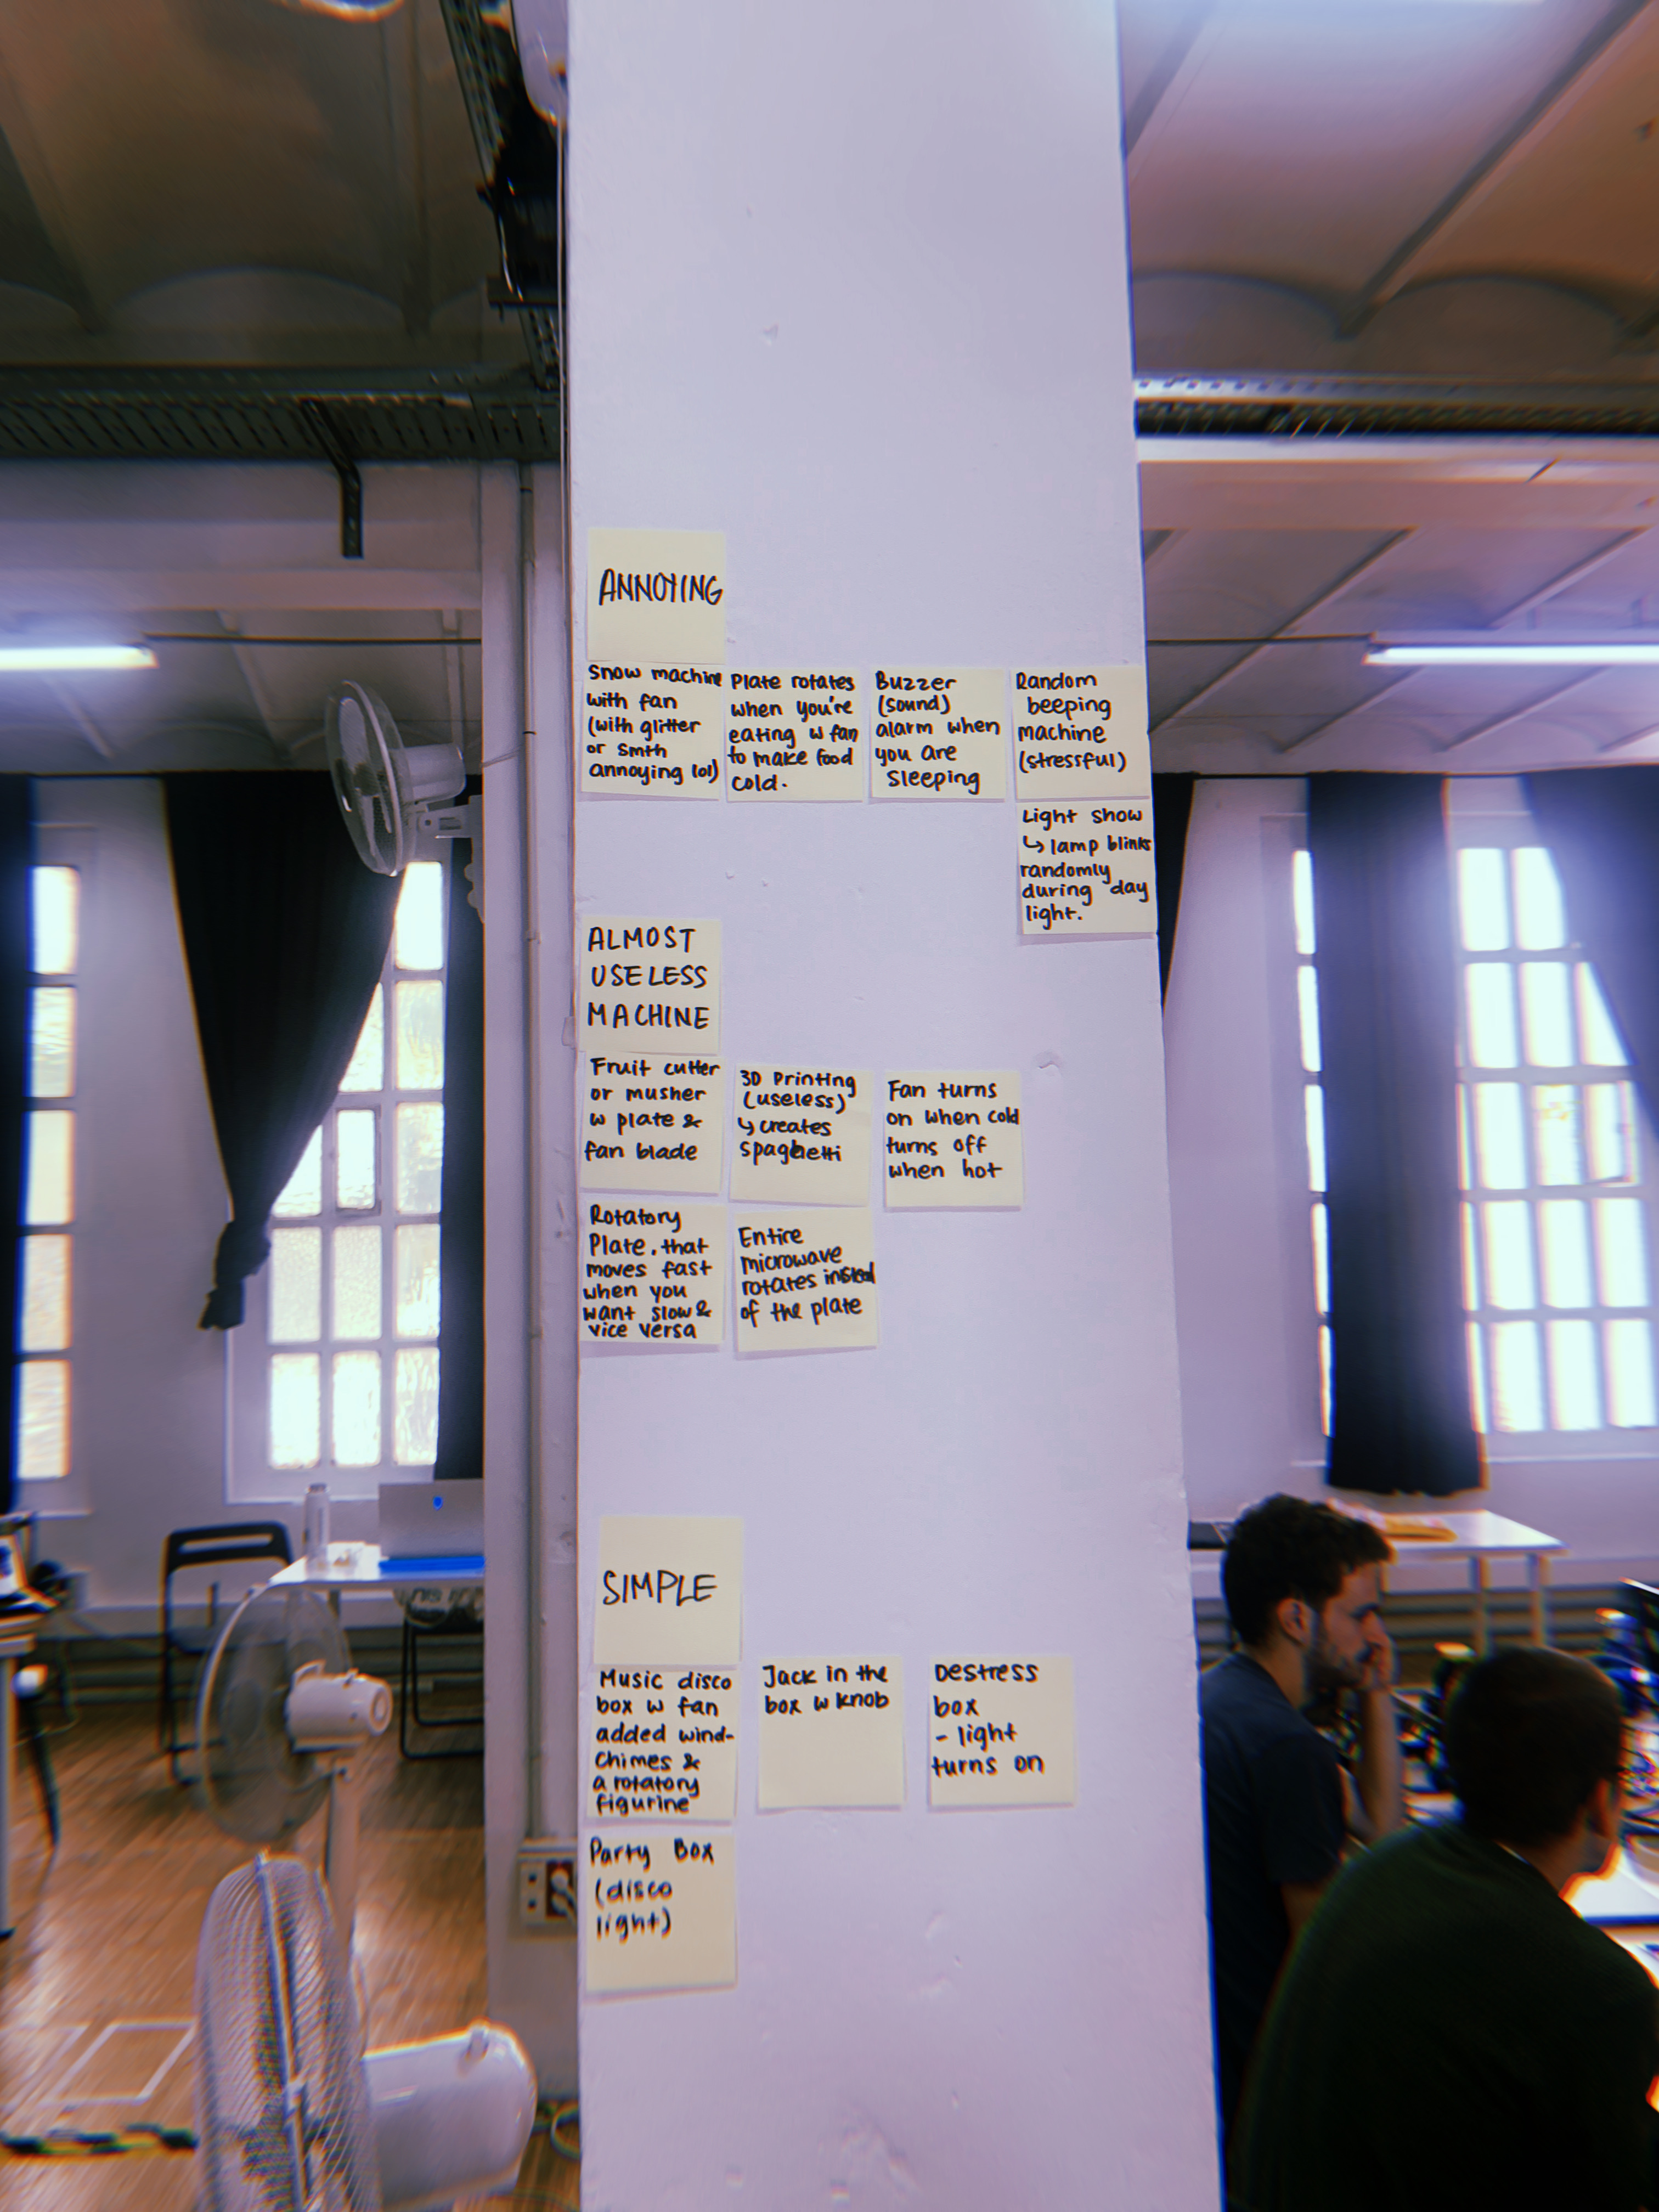 ANNOYING
Snow machine
with fan
(with glitter
or smth
annoying lol)
Plate rotates
when you're
eating w fan
to make food
cold.
Buzzer
(sound)
alarm when
you are
sleeping
Random
beeping
machine
(stressful)
Light show
↳ lamp blinks
randomly
during day
light.
ALMOST
USELESS
MACHINE
Fruit cutter
or musher
w plate &
fan blade
3D Printing
(useless)
↳ creates
spaghetti
Fan turns
on when cold
turns off
when hot
Rotatory
Plate, that
moves fast
when you
want slow &
vice versa
Entire
microwave
rotates instead
of the plate
SIMPLE
Music disco
box w fan
added wind-
chimes &
a rotatory
figurine
Jack in the
box w knob
Destress
box
- light
turns on
Party Box
(disco
light)